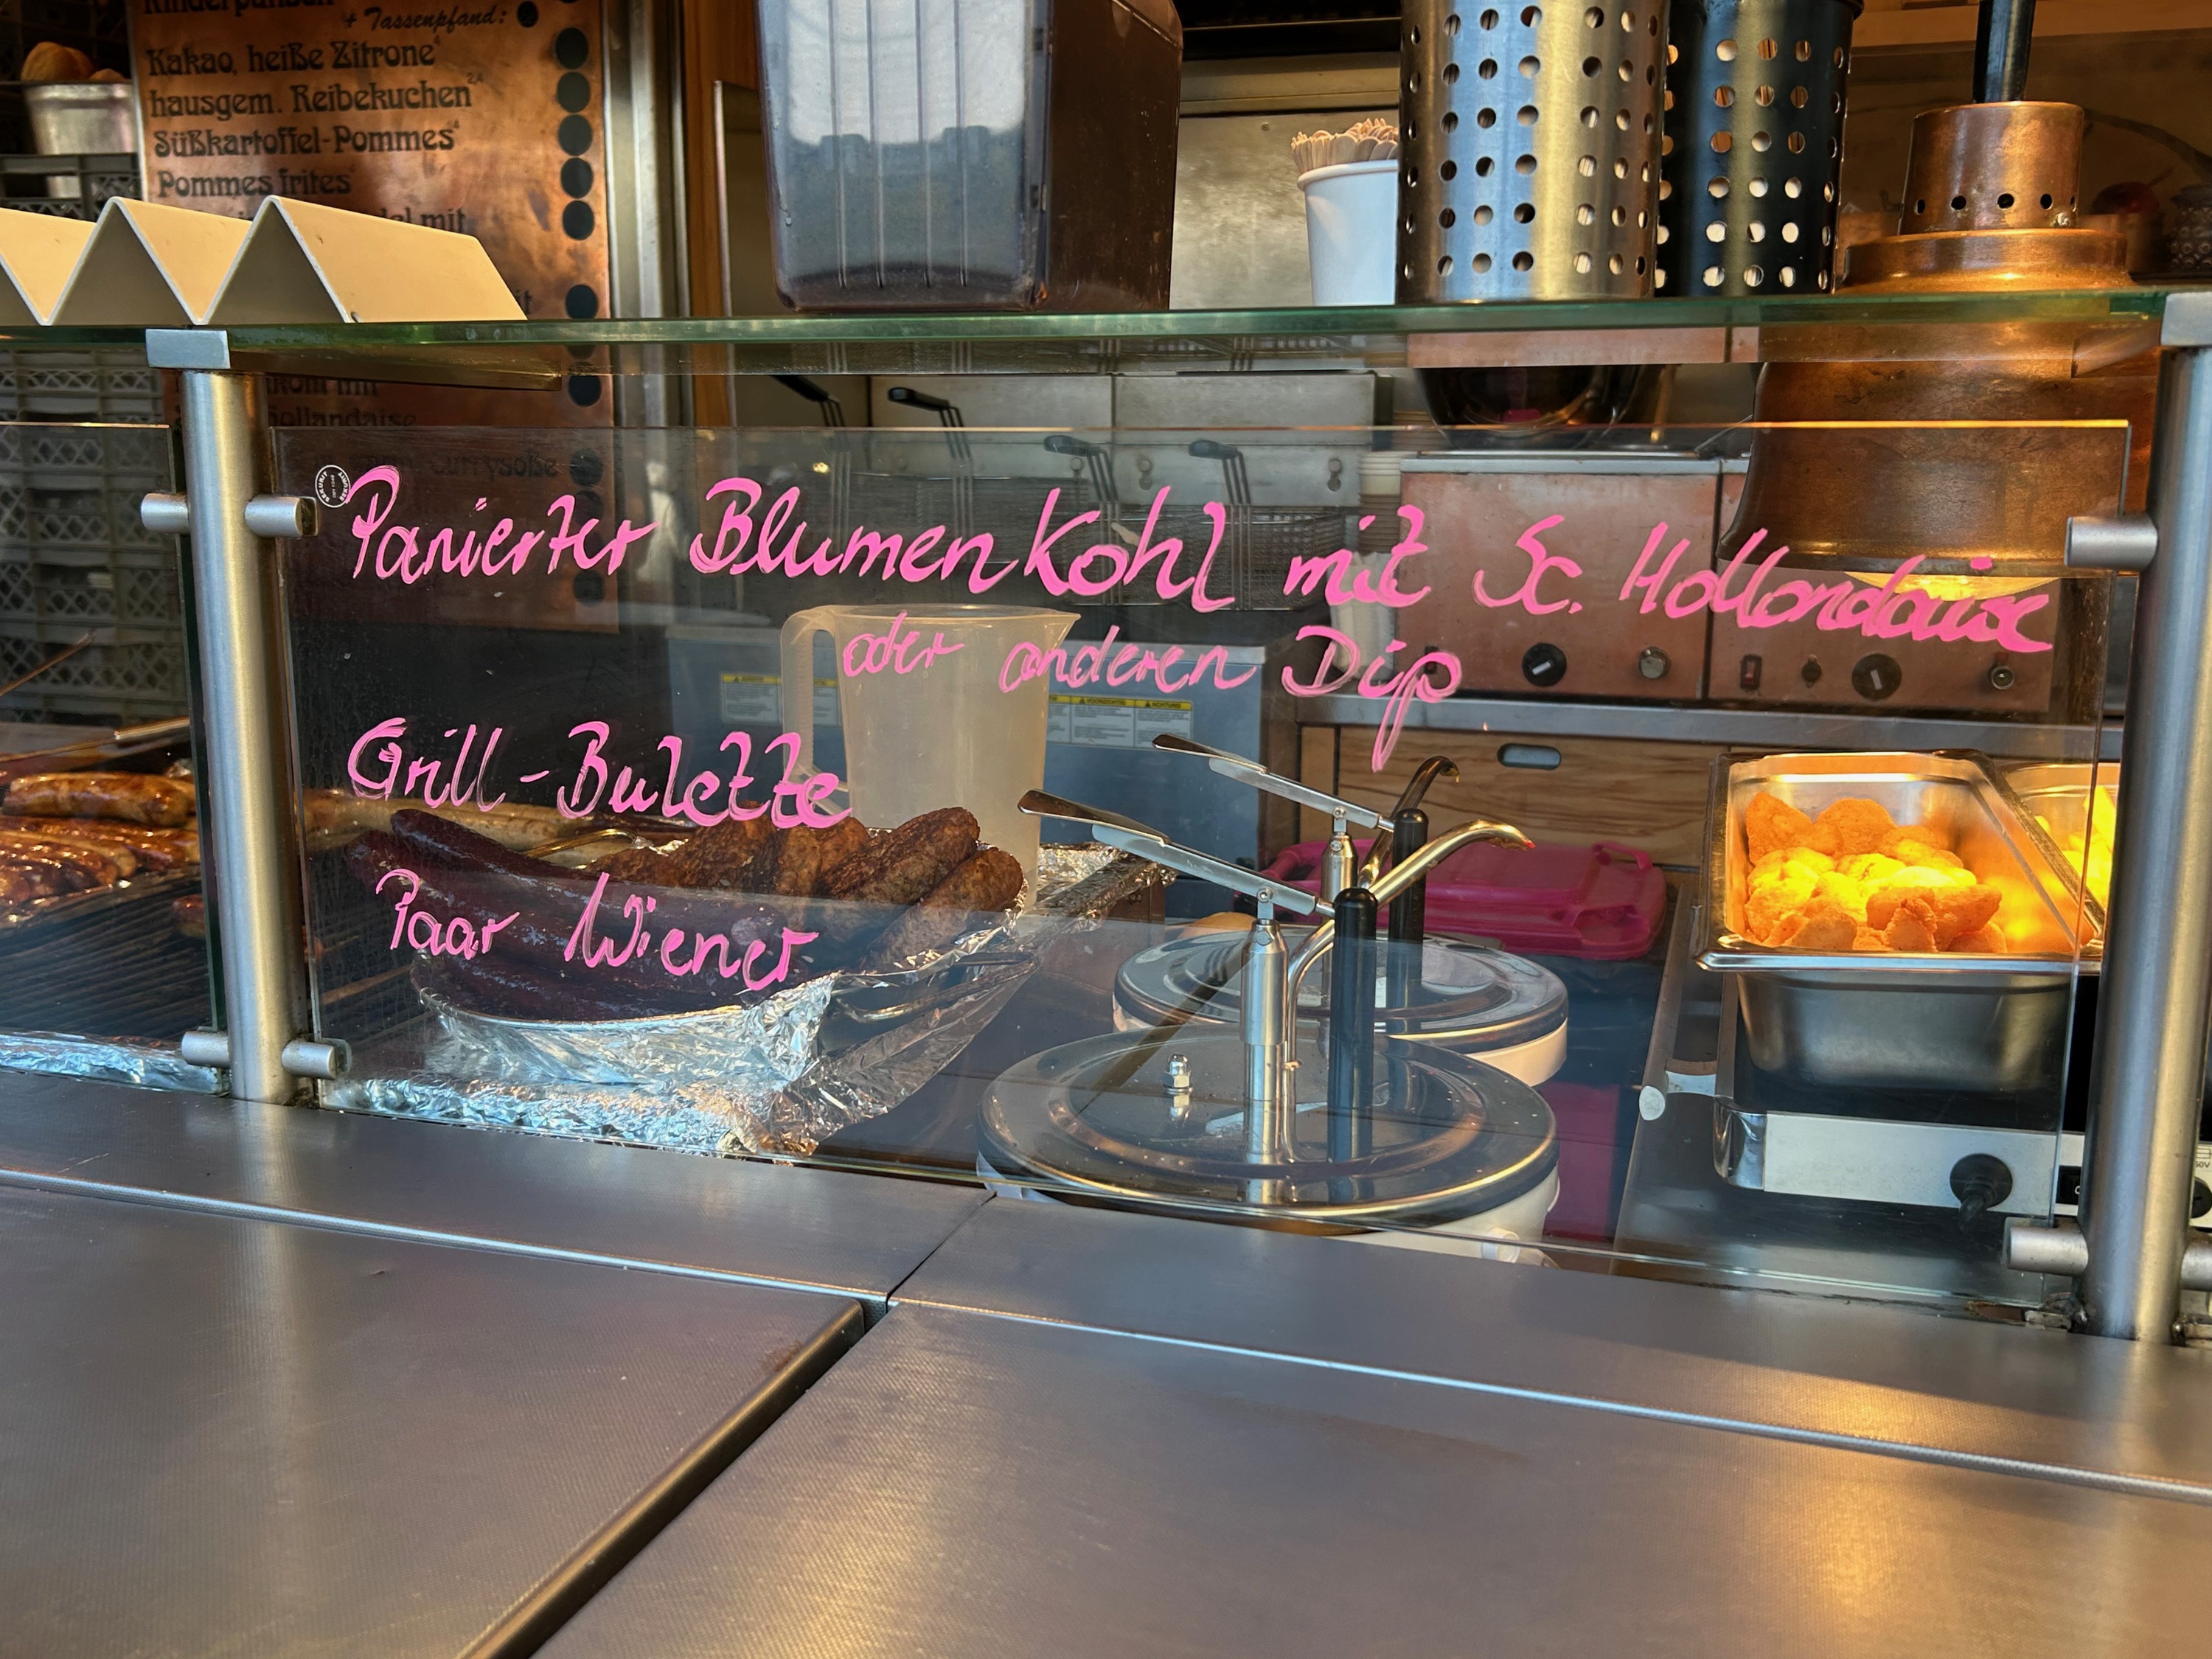 + Tassenpfand:
Kakao, heiße Zitrone
hausgem. Reibekuchen 2,4
Süßkartoffel-Pommes 4
Pommes frites
mit
Hollandaise
Currysoße
Panierter Blumenkohl mit Sc. Hollondaise
oder anderen Dip
Grill-Bulette
Paar Wiener